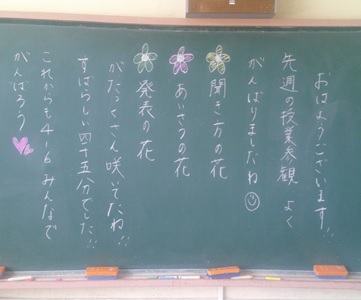 おはようございます!!
先週の授業参観 よく
がんばりましたね
聞き方の花
あいさつの花
発表の花
がたっくさん咲いてたね!!
すばらしい四十五分でした!!
これからも4-6みんなで
がんばろう